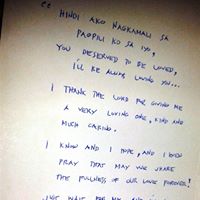 "HINDI AKO NAGKAMALI SA
PAGPILI KO SA IYO,
YOU DESERVED TO BE LOVED,
I'LL BE ALWAYS LOVING YOU...
I THANK THE LORD FOR GIVING ME
A VERY LOVING ONE, KIND AND
MUCH CARING.
I KNOW AND I HOPE, AND I EVEN
PRAY THAT MAY WE SHARE
THE FULLNESS OF OUR LOVE FOREVER!
JUST WAIT FOR ME, AND